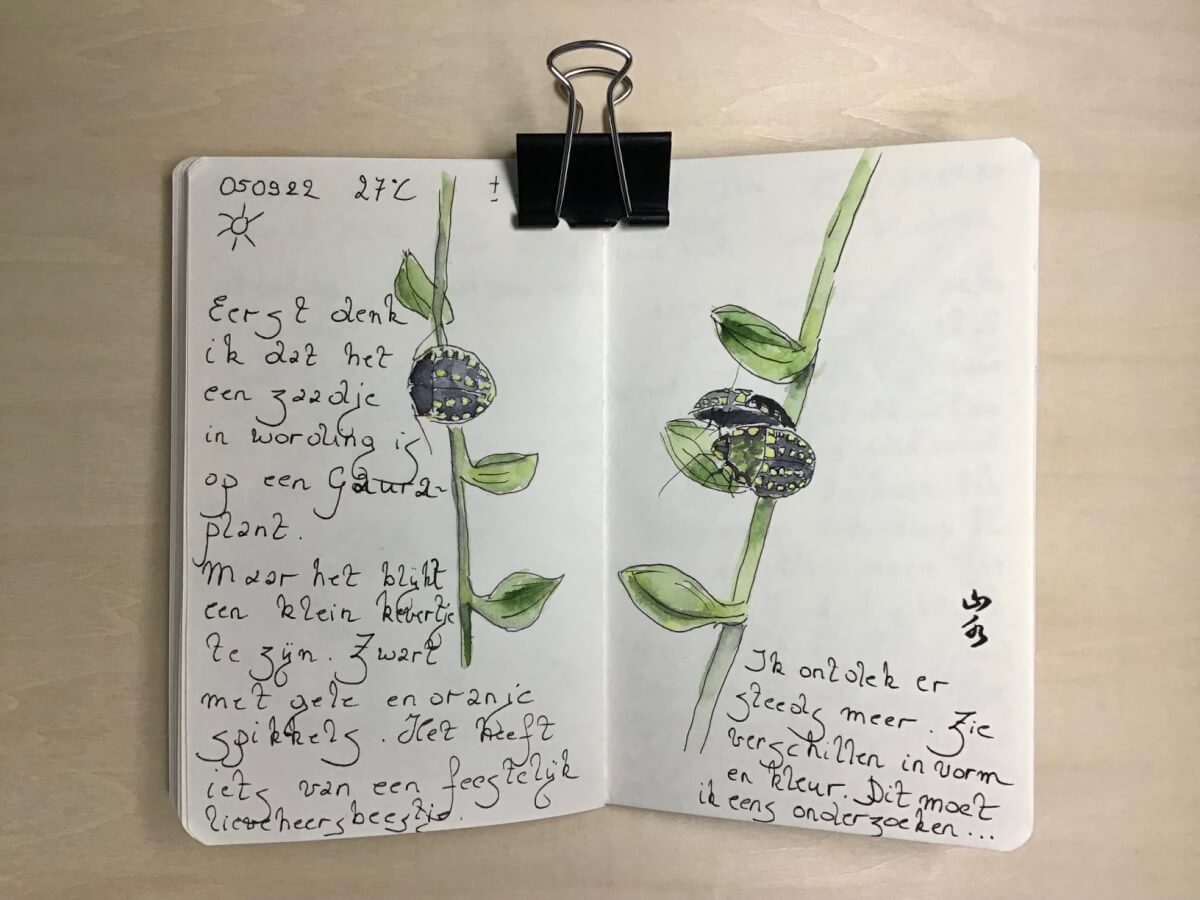 050922 27°C ±
Eerst denk
ik dat het
een zaadje
in wording is
op een Gaura-
plant.
Maar het blijkt
een klein kevertje
te zijn. Zwart
met gele en oranje
spikkels. Het heeft
iets van een feestelijk
lieveheersbeestje.
山
水
Ik ontdek er
steeds meer. Zie
verschillen in vorm
en kleur. Dit moet
ik eens onderzoeken...